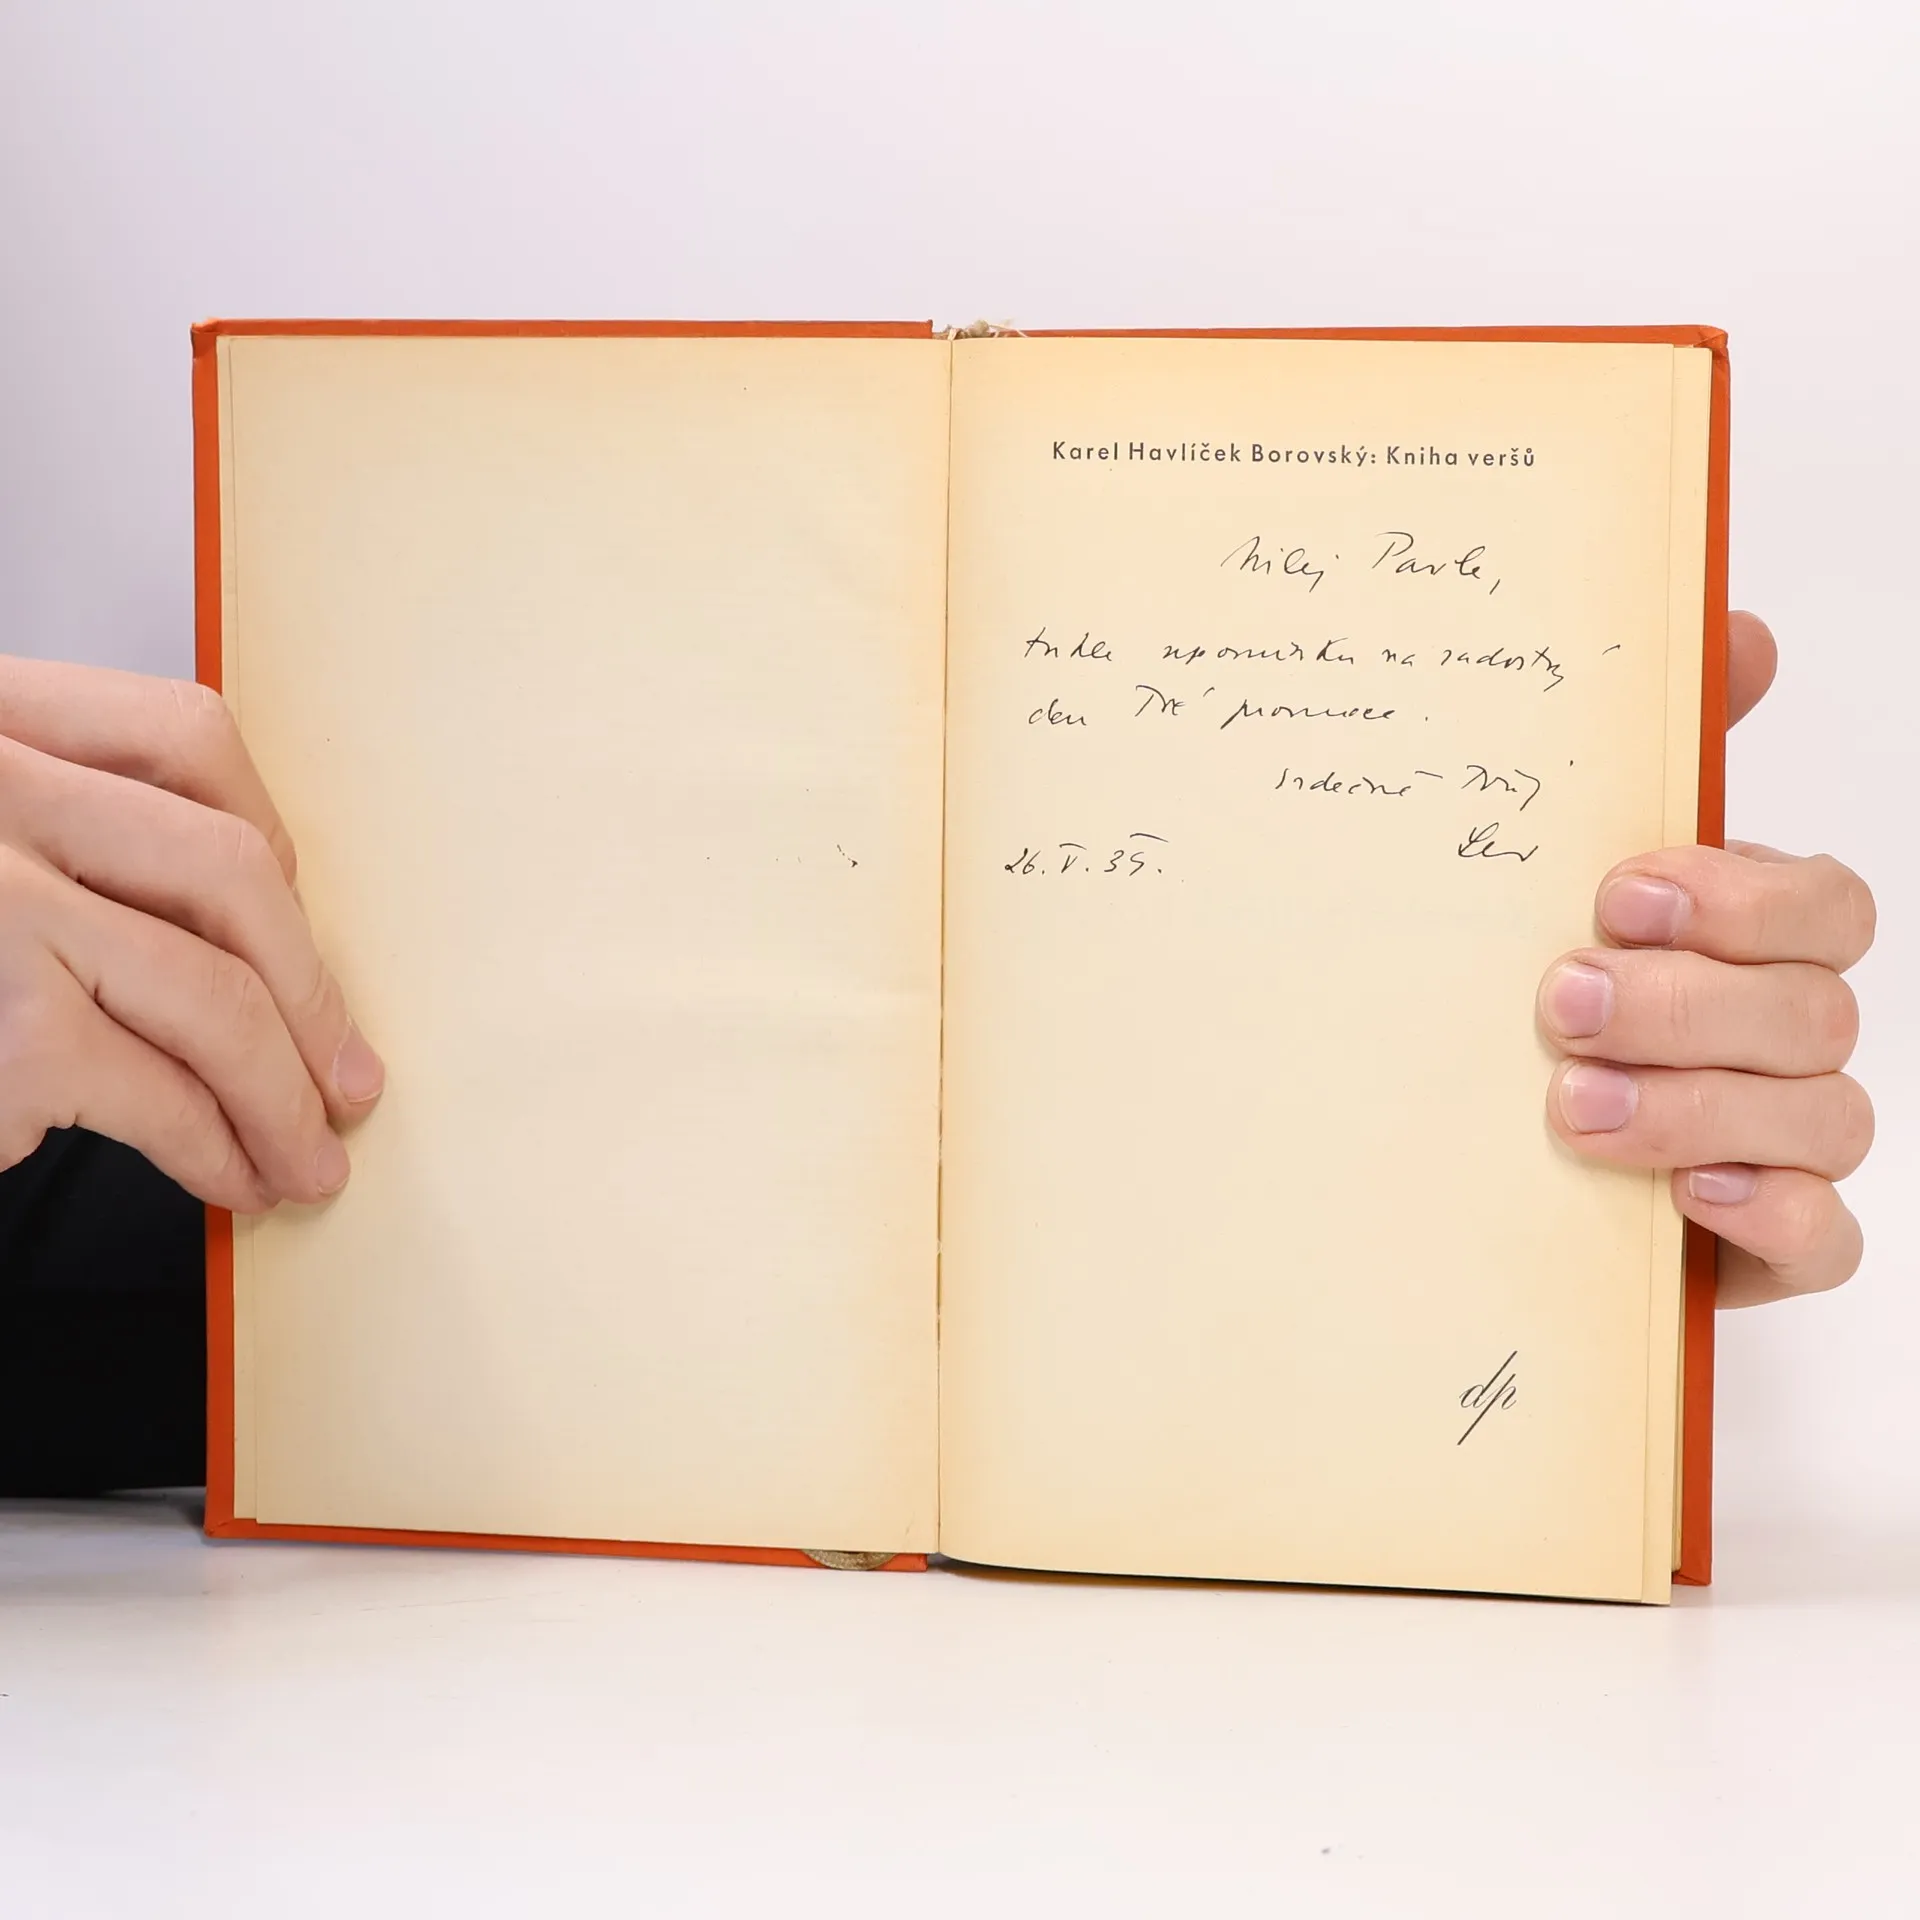 Karel Havlíček Borovský: Kniha veršů
Milý Pavle,
tuhle upomínku na radostný
den Tvé promoce.
srdečně Tvůj
Lev
26. V. 35.
dp